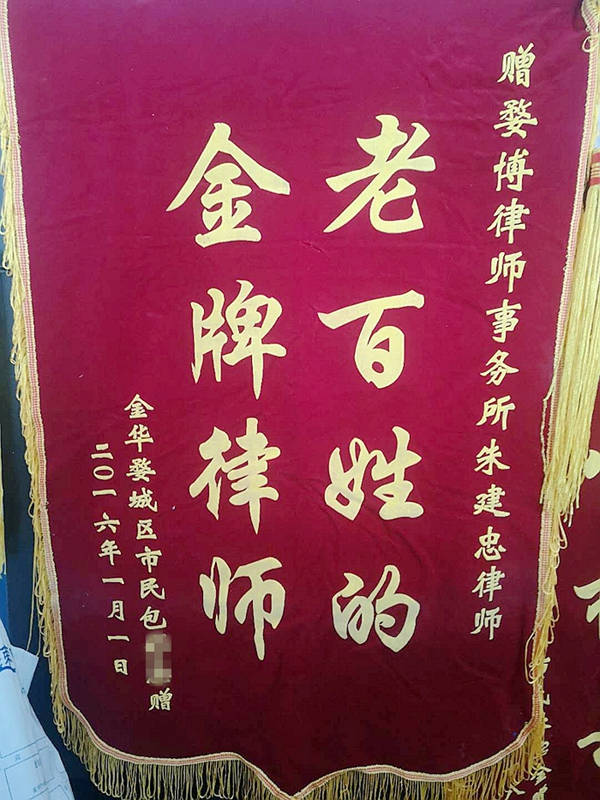 赠婺博律师事务所朱建忠律师
老百姓的
金牌律师
金华婺城区市民包
赠
二〇一六年一月一日